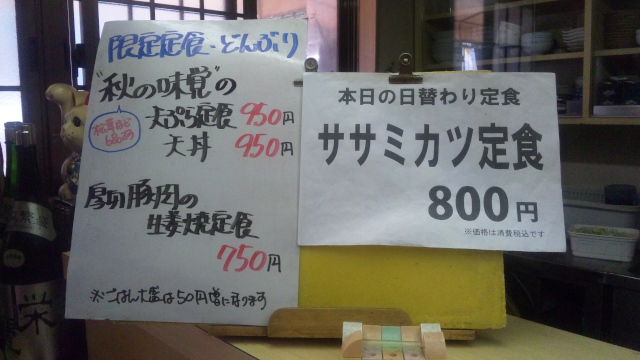 限定定食・どんぶり
"秋の味覚"の
天ぷら定食 950円
天丼 950円
厚切豚肉の
生姜焼定食
750円
※ごはん大盛は50円増になります
本日の日替わり定食
ササミカツ定食
800円
※価格は消費税込です
栄